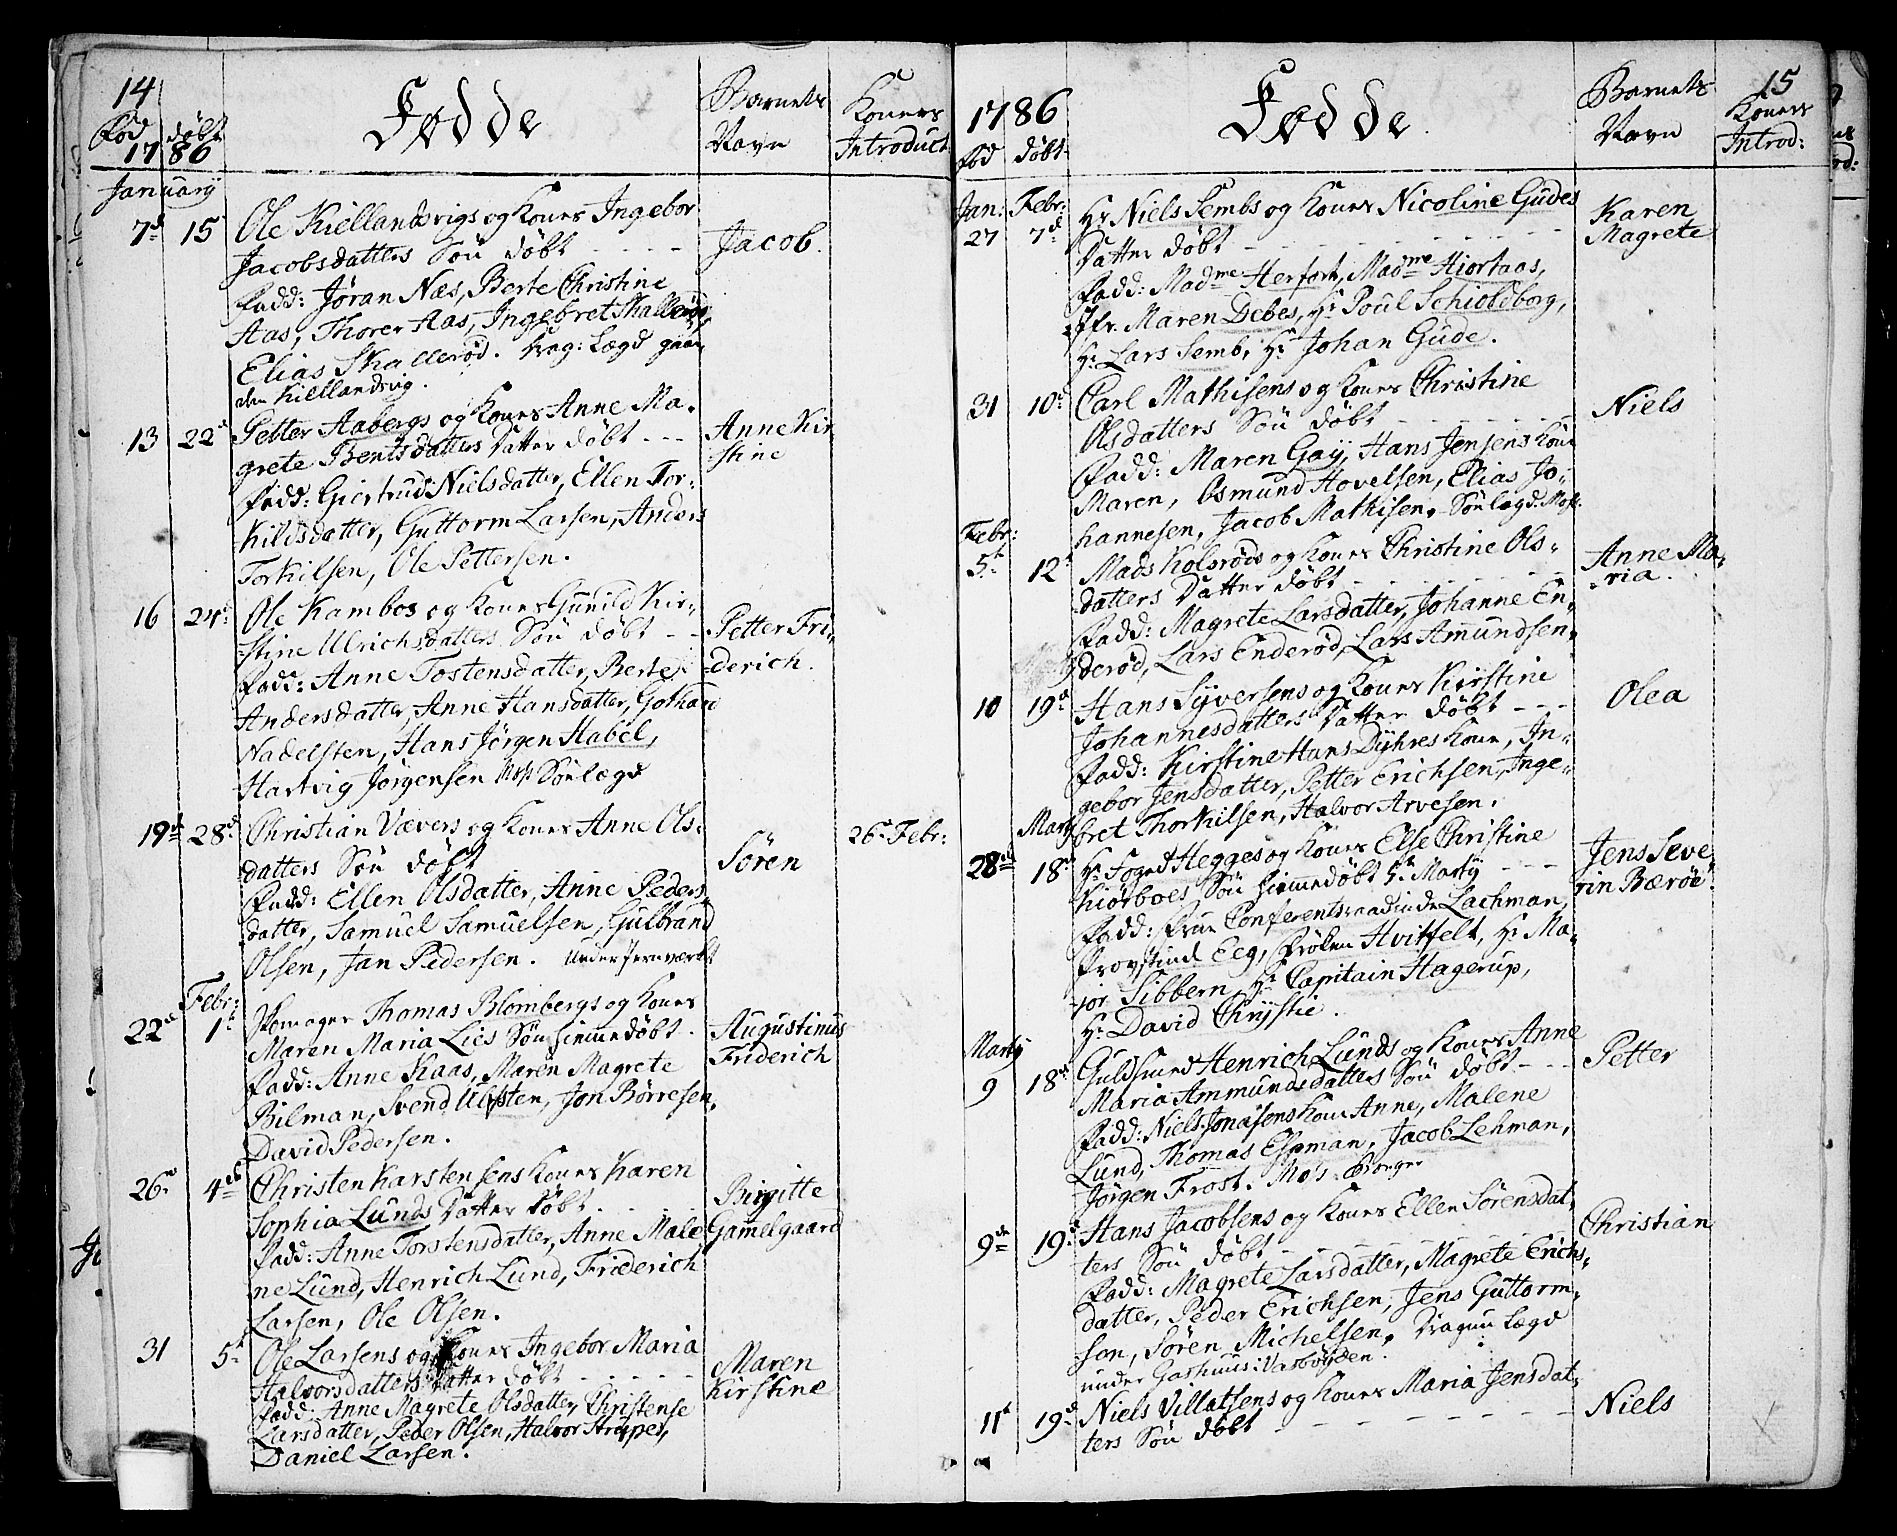 14
Fød døbt
1786
Fødde
Barnets
Navn
Koners
Introduct
January
7d 15 Ole Kiellandsvigs og Kones Ingebor
Jacobsdatters Søn døbt - - - - Jacob.
Fadd: Jøran Næs, Berte Christine
Aas, Thorer Aas, Ingebret Skallerød,
Elias Skallerød. Lægd
den Kiellandsvig.
13 22d Petter Aabergs og Kones Anne Ma-
grete Bentsdatters Datter døbt - - - Anne Kir-
stine
Fadd: Giertrud Nielsdatter, Ellen Tor-
kildsdatter, Guttorm Larsen, Anders
Torkilsen, Ole Pettersen.
16 24d Ole Kambos og Kones Gunild Kir-
stine Ulrichsdatters Søn døbt - - Petter Fri-
derich.
Fadd: Anne Tostensdatter, Berte
Andersdatter, Anne Hansdatter, Gothard
Nadelsten, Hans Jörgen Habel,
Hartvig Jørgensen Moss Sönlægd
19d 28d Christian Vævers og Kones Anne Ols-
datters Søn døbt Sören 26d Febr:
Fadd: Ellen Olsdatter, Anne Peders-
datter, Samuel Samuelsen, Gulbrand
Olsen, Jan Pedersen. under Jernværket
Febr:
22d 1t Thomas Blombergs og Kones
Maren Maria Lies Søn hiemmedøbt. Augustinus
Friderich
Fadd: Anne Kaas, Maren Magrete
Bilman, Svend Ulfsten, Jon Børresen,
David Pedersen.
26d 4de Christen Karstensens Kones Karen
Sophia Lunds Datter døbt. Birgitte
Gammelgaard
Fadd: Anne Torstensdatter, Anne Male-
ne Lund, Henrich Lund, Friderich
Larsen, Ole Olsen.
31 5t Ole Larsens og Kones Ingebor Maria
Halvorsdatters Datter døbt - - - - - Maren
Kirstine
Fadd: Anne Magrete Olsdatter, Christense
Larsdatter, Peder Olsen, Halvor Strupes,
Daniel Larsen.
1786
Fød døbt
Fødde
Barnets
Navn
15
Koners
Introd:
Jan: Febr:
27 7d Hr Niels Sembs og Kones Nicoline Gudes
Datter døbt - - - - - - - Karen
Magrete
Fadd: Madme Herfort, Madme Hiortaas,
Jfr. Maren Debes, Hr Poul Schioldborg,
Hr Lars Semb, Hr Johan Gude.
31 10d Carl Mathisens og Kones Christine
Olsdatters Søn døbt - - - - - Niels
Fadd: Maren Gay, Hans Jensens Kone
Maren, Osmund Hovelsen, Elias Jo-
hannesen, Jacob Mathisen. Sönlægd. Moss.
Febr:
5t 12t Mads Kolsrøds og Kones Christine Ols-
datters Datter døbt - - - - - Anne Ma-
ria.
Fadd: Magrete Larsdatter, Johanne En-
derød, Lars Enderød, Lars Amundsen.
10 19d Hans Syversens og Kones Kirstine
Johannesdatters Datter døbt - - - Olea
Fadd: Kirstine Hans Dyhres Kone, In-
gebor Jensdatter, Petter Erichsen, Inge-
bret Thorkilsen, Halvor Arvesen.
Marty
28de 18d Hr Foged Hegges og Kones Else Christine
Kiörboes Søn hiemmedøbt 5t Marty - - - Jens Seve-
rin Bærøe.
Fadd: Frue Conferentsraadinde Lachman,
Provstinde Eeg, Frøken Hvitfelt, Hr Ma-
jor Sibbern, Hr Capitain Hagerup,
Hr David Chrystie.
Marty
9 18d Guldsmed Henrich Lunds og Kones Anne
Maria Ammundsdatters Søn døbt - - - Petter
Fadd: Niels Jonasens Kone Anne, Malene
Lund, Thomas Espman, Jacob Lehman,
Jørgen Frost. Moss. Borger
9de 19d Hans Jacobsens og Kones Ellen Sørensdat-
ters Søn døbt - - - - - Christian
Fadd: Magrete Larsdatter, Magrete Erichs-
datter, Peder Erichsen, Jens Guttorm-
son, Søren Michelsen. Dragun Lægd
under Gashuus i Varbøyden.
11t 19d Niels Villatsens og Kones Maria Jensdat-
ters Søn døbt - - - - - - - Niels